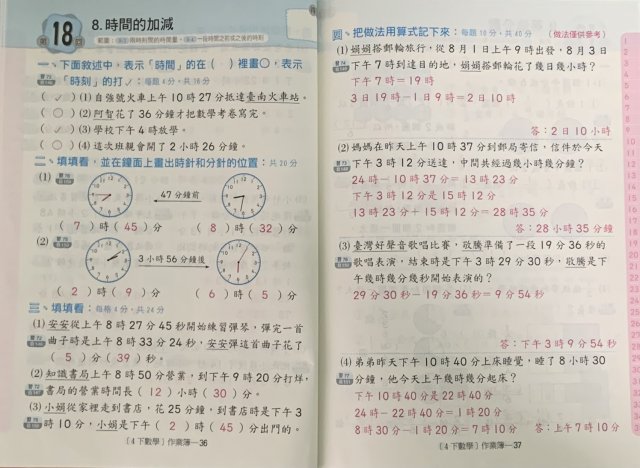 第18回
8. 時間的加減
一、下面敘述中，表示「時間」的在（ ）裡畫○，表示
「時刻」的打✓：每題4分，共16分
（✓）(1) 自強號火車上午10時27分抵達臺南火車站。
（○）(2) 阿智花了36分鐘才把數學考卷寫完。
（✓）(3) 學校下午4時放學。
（○）(4) 這次班親會開了2小時26分鐘。
二、填填看，並在鐘面上畫出時針和分針的位置：共20分
(1)
47分鐘前
（ 7 ）時（ 45 ）分
（ 8 ）時（ 32 ）分
(2)
3小時56分鐘後
（ 2 ）時（ 9 ）分
（ 6 ）時（ 5 ）分
三、填填看：每格4分，共24分
(1) 安安從上午8時27分45秒開始練習彈琴，彈完一首
曲子時是上午8時33分24秒，安安彈這首曲子花了
（ 5 ）分（ 39 ）秒。
(2) 知識書局上午8時50分營業，到下午9時20分打烊，
書局的營業時間長（ 12 ）小時（ 30 ）分。
(3) 小娟從家裡走到書店，花25分鐘，到書店時是下午3
時10分，小娟是下午（ 2 ）時（ 45 ）分出門的。
〔4下數學〕作業簿—36
四、把做法用算式記下來：每題10分，共40分 （做法僅供參考）
(1) 娟娟搭郵輪旅行，從8月1日上午9時出發，8月3日
下午7時到達目的地，娟娟搭郵輪花了幾日幾小時？
下午7時＝19時
3日19時－1日9時＝2日10時
答：2日10小時
(2) 媽媽在昨天上午10時37分到郵局寄信，信件於今天
下午3時12分送達，中間共經過幾小時幾分鐘？
24時－10時37分＝13時23分
下午3時12分是15時12分
13時23分＋15時12分＝28時35分
答：28小時35分鐘
(3) 臺灣好聲音歌唱比賽，敬騰準備了一段19分36秒的
歌唱表演，結束時是下午3時29分30秒，敬騰是下
午幾時幾分幾秒開始表演的？
29分30秒－19分36秒＝9分54秒
答：下午3時9分54秒
(4) 弟弟昨天下午10時40分上床睡覺，睡了8小時30
分鐘，他今天上午幾時幾分起床？
下午10時40分是22時40分
24時－22時40分＝1時20分
8時30分－1時20分＝7時10分
答：上午7時10分
〔4下數學〕作業簿—37